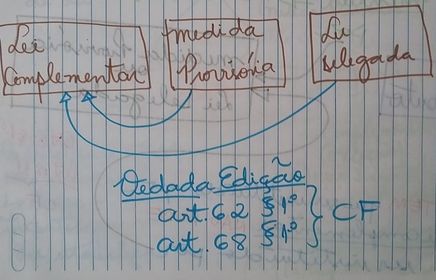 Lei
Complementar
medida
Provisória
Lei
delegada
Vedada Edição
art. 62 §1º
art. 68 §1º
CF